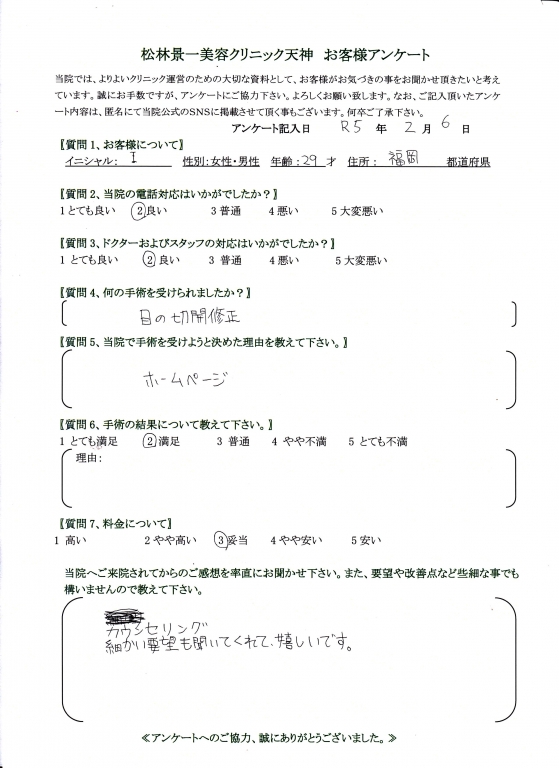 松林景一美容クリニック天神　お客様アンケート
当院では、よりよいクリニック運営のための大切な資料として、お客様がお気づきの事をお聞かせ頂きたいと考え
ています。誠にお手数ですが、アンケートにご協力下さい。よろしくお願い致します。なお、ご記入頂いたアンケ
ート内容は、匿名にて当院公式のSNSに掲載させて頂く事もございます。何卒ご了承下さい。
アンケート記入日　R5　年　2　月　6　日
【質問1、お客様について】
イニシャル：　I　性別：女性・男性　年齢：29　才　住所：　福岡　都道府県
【質問2、当院の電話対応はいかがでしたか？】
1とても良い　②良い　3普通　4悪い　5大変悪い
【質問3、ドクターおよびスタッフの対応はいかがでしたか？】
1 とても良い　②良い　3 普通　4悪い　5大変悪い
【質問4、何の手術を受けられましたか？】
目の切開修正
【質問5、当院で手術を受けようと決めた理由を教えて下さい。】
ホームページ
【質問6、手術の結果について教えて下さい。】
1 とても満足　②満足　3 普通　4 やや不満　5 とても不満
理由：
【質問7、料金について】
1 高い　2やや高い　③妥当　4やや安い　5安い
当院へご来院されてからのご感想を率直にお聞かせ下さい。また、要望や改善点など些細な事でも
構いませんので教えて下さい。
カウンセリング
細かい要望も聞いてくれて、嬉しいです。
≪アンケートへのご協力、誠にありがとうございました。≫